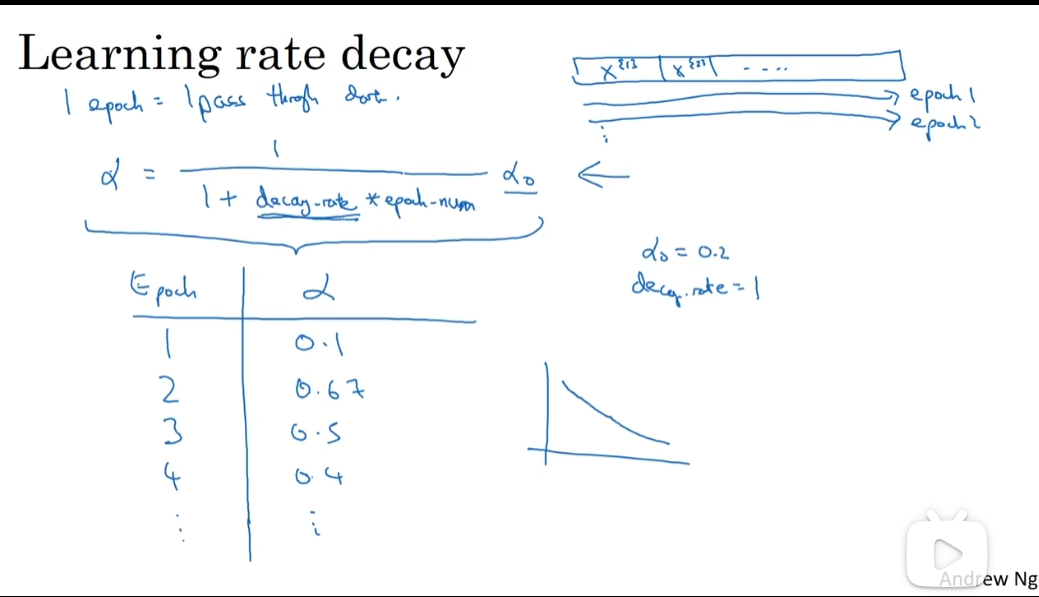 Learning rate decay
1 epoch = 1 pass through data.
X^{1} X^{2} ....
epoch 1
epoch 2
⋮
α = 1 / (1 + decay-rate * epoch-num) α₀ ←
α₀ = 0.2
decay-rate = 1
Epoch α
1 0.1
2 0.67
3 0.5
4 0.4
⋮ ⋮
Andrew Ng